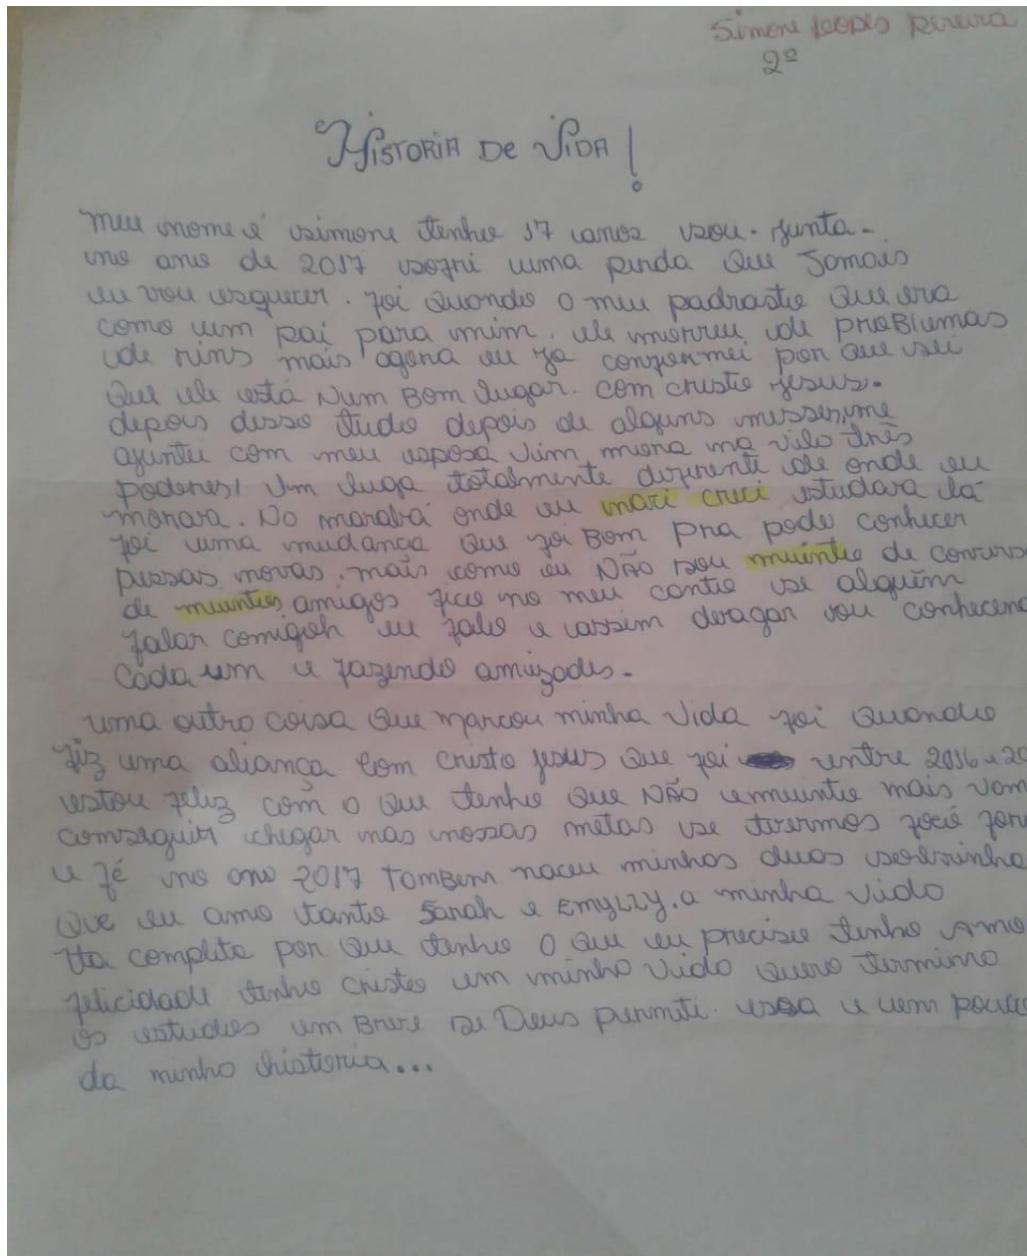 Simone Lopes Pereira
2º
Historia de Vida!
meu nome é simone tenho 17 anos sou. junta.
no ano de 2017 sofri uma perda que Jamais
eu vou esquecer. foi quando o meu padrasto que era
como um pai para mim. ele morreu de problemas
de rins mais agora eu ja conformei por que sei
que ele está num Bom lugar. com cristo jesus.
depois disso tudo depois de alguns messes, me
ajunte com meu esposo vim mora na vila três
poderes! um luga totalmente diferente de onde eu
morava. No marabá onde eu masci creci estudava lá
foi uma mudança que foi Bom pra pode conhecer
pessas novas, mais como eu NÃO sou muinto de convers
de muintos amigos fico no meu canto se alguém
falar comigoh eu falo e assim devagar vou conhecend
cada um e fazendo amizades.
uma outro coisa que marcou minha vida foi quando
fiz uma aliança com cristo jesus que foi entre 2016 e 20
estou feliz com o que tenho que NÃO e muinto mais vam
comseguir chegar nas nossas metas se tivermos foco forç
e fé no ano 2017 Tombem naceu minhas duas sobrinha
que eu amo tanto Sarah e Emyzzy. a minha vida
tta completa por que tenho o que eu preciso tenho amo
felicidade tenho cristo em minha vida quero termina
os estudos em Breve se Deus permiti. essa e um pouco
da minha historia...